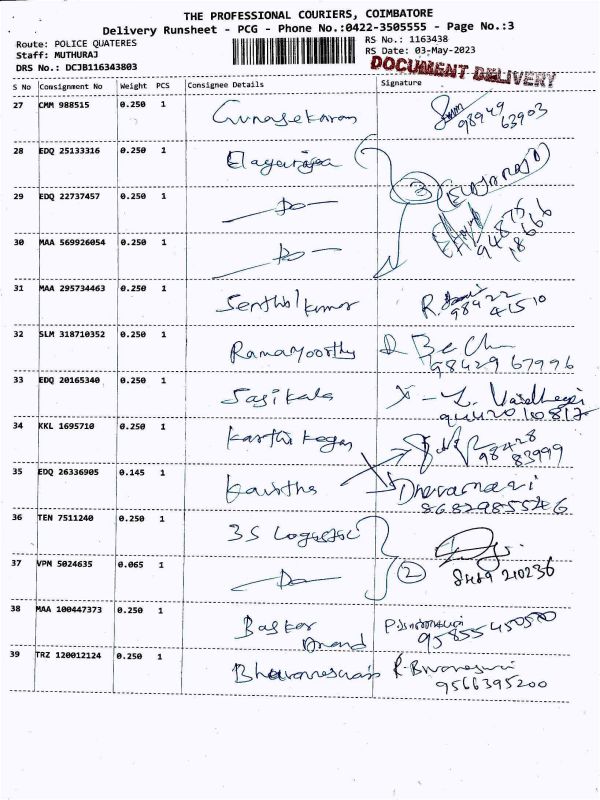 THE PROFESSIONAL COURIERS, COIMBATORE
Delivery Runsheet - PCG - Phone No.:0422-3505555 - Page No.:3
Route: POLICE QUATERES
RS No.: 1163438
Staff: MUTHURAJ
RS Date: 03-May-2023
DRS No.: DCJB116343803
DOCUMENT DELIVERY
S No Consignment No Weight PCS Consignee Details Signature
27 CMM 988515 0.250 1 Gunasekaran
98949
63903
28 EDQ 25133316 0.250 1 Elayaraja
3
29 EDQ 22737457 0.250 1 — Do —
94875
18666
30 MAA 569926054 0.250 1 — Do —
31 MAA 295734463 0.250 1 Senthil kumar R.
98422
41510
32 SLM 318710352 0.250 1 Ramamoorthy
98429 67996
33 EDQ 20165340 0.250 1 Sasikala
34 KKL 1695710 0.250 1 Karthikeyan
98428
83999
35 EDQ 26336905 0.145 1 Kavitha
36 TEN 7511240 0.250 1 3S Logistic
37 VPN 5024635 0.065 1 — Do — 2
210236
38 MAA 100447373 0.250 1 Baskar
Anand
95855 450550
39 TRZ 120012124 0.250 1 Bhuvaneswari R. Bhuvaneswari
9566395200